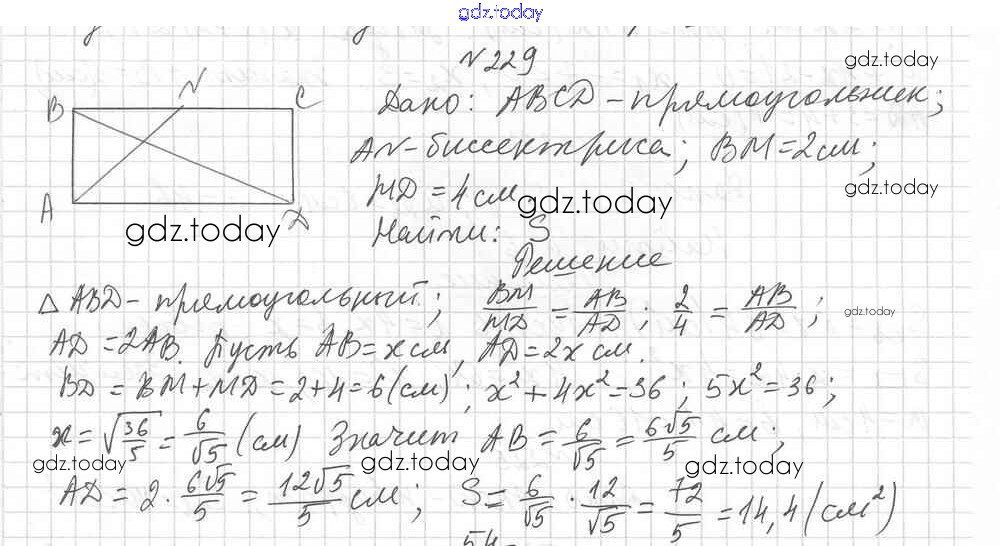 gdz.today
№229
gdz.today
B N C
Дано: ABCD - прямоугольник;
AN - биссектриса; BM = 2 см;
MD = 4 см.
gdz.today
gdz.today
A D
gdz.today
Найти: S
Решение
△ ABD - прямоугольный; BM/MD = AB/AD; 2/4 = AB/AD;
gdz.today
AD = 2AB. Пусть AB = x см, AD = 2x см.
BD = BM + MD = 2 + 4 = 6 (см); x² + 4x² = 36; 5x² = 36;
x = √36/5 = 6/√5 (см) Значит AB = 6/√5 = 6√5/5 см;
gdz.today gdz.today gdz.today
AD = 2 · 6√5/5 = 12√5/5 см; S = 6/√5 · 12/√5 = 72/5 = 14,4 (см²)